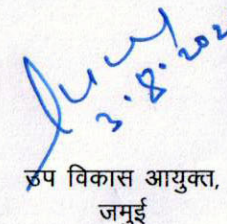 3.8.202
उप विकास आयुक्त,
जमुई